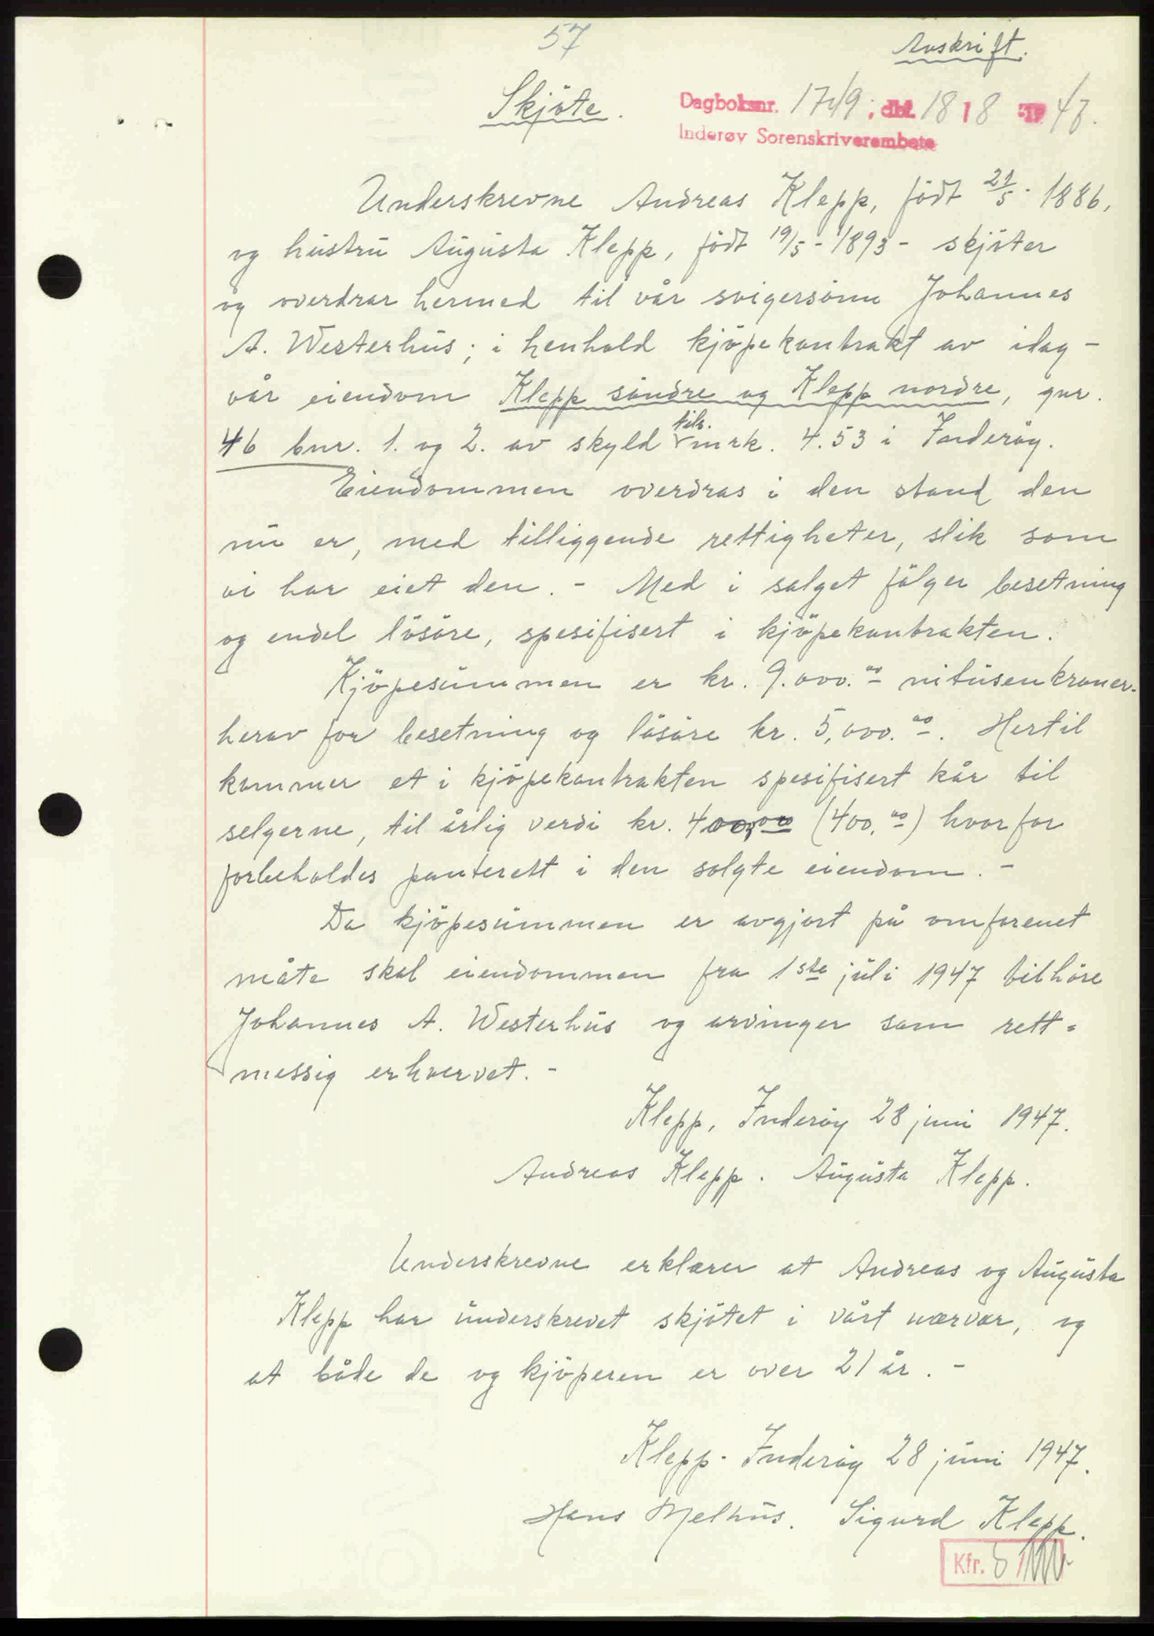 57
Avskrift.
Skjöte.
Dagboksnr. 1749; dbf. 18 | 8 19 47.
Inderøy Sorenskriverembete
Underskrevne Andreas Klepp, födt 21/5 - 1886,
og hustru Augusta Klepp, födt 19/5 - 1893 - skjöter
og overdrar hermed til vår svigersönn Johannes
A. Westerhus; i henhold kjöpekontrakt av idag -
vår eiendom Klepp söndre og Klepp nordre, gnr.
46 bnr. 1. og 2. av skyld tils. mrk. 4.53 i Inderöy.
Eiendommen overdras i den stand den
nu er, med tilliggende rettigheter, slik som
vi har eiet den. - Med i salget fölger besetning
og endel lösöre, spesifisert i kjöpekontrakten.
Kjöpesummen er kr. 9.000.00 nitusenkroner.
herav for besetning og lösöre kr. 5,000.00. Hertil
kommer et i kjöpekontrakten spesifisert kår til
selgerne, til årlig verdi kr. 400,00 (400,00) hvorfor
forbeholdes panterett i den solgte eiendom. -
Da kjöpesummen er avgjort på omforenet
måte skal eiendommen fra 1ste juli 1947 tilhöre
Johannes A. Westerhus og arvinger som rett-
messig erhvervet. -
Klepp, Inderöy 28 juni 1947.
Andreas Klepp. Augusta Klepp.
Underskrevne erklærer at Andreas og Augusta
Klepp har underskrevet skjötet i vårt nærvær, og
at både de og kjöperen er over 21 år. -
Klepp - Inderöy 28 juni 1947.
Hans Melhus. Sigurd Klepp.
Kfr. 8